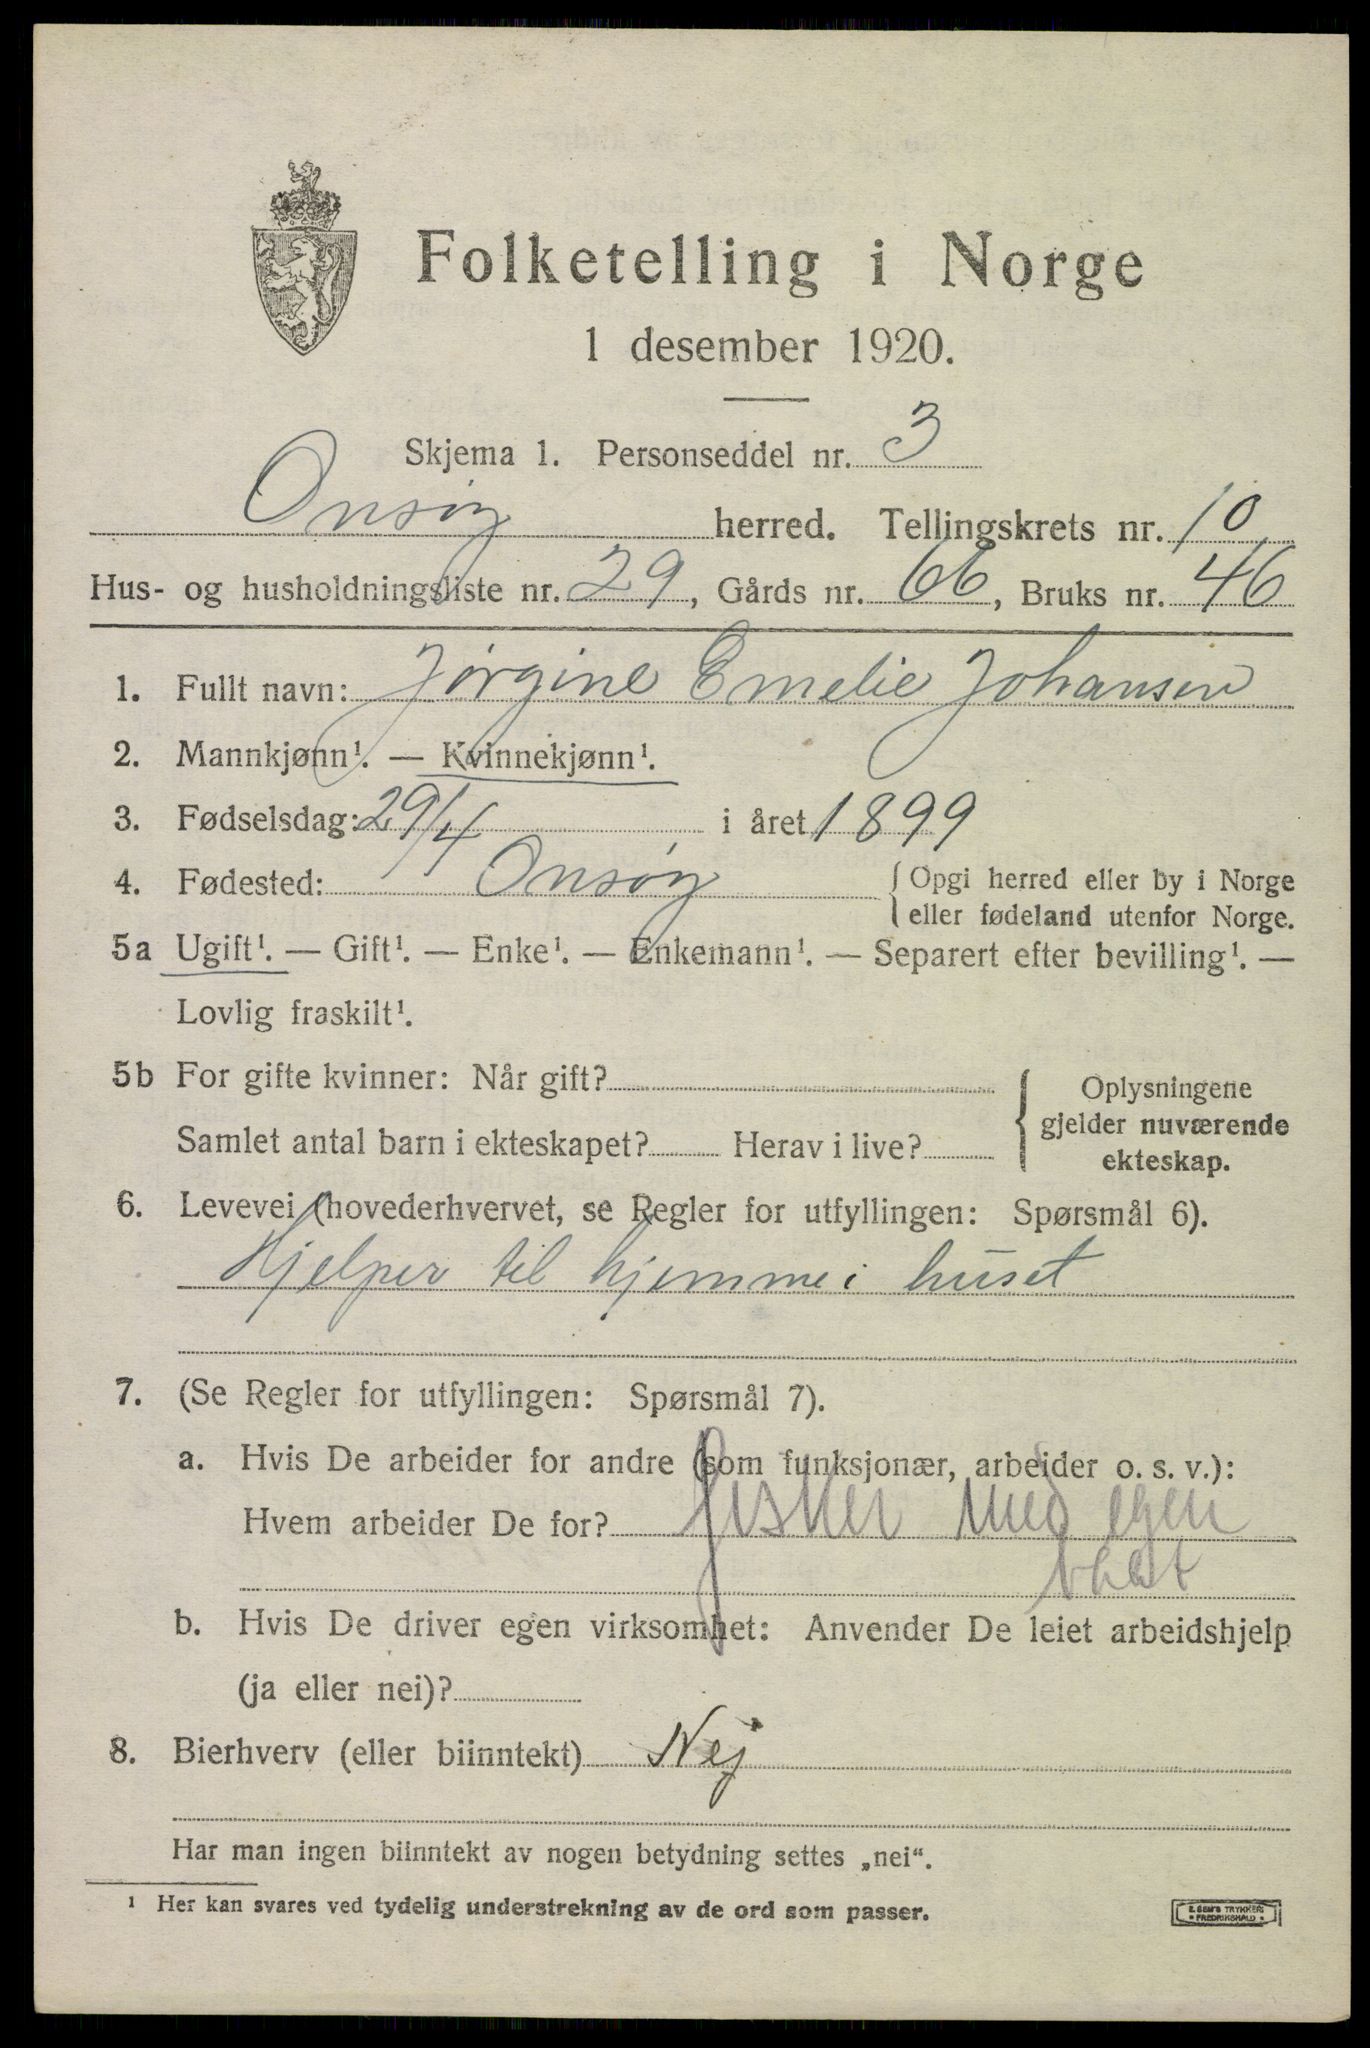 Folketelling i Norge
1 desember 1920.
Skjema 1. Personseddel nr. 3
Onsøy herred. Tellingskrets nr. 10
Hus- og husholdningsliste nr. 29, Gårds nr. 66, Bruks nr. 46
1. Fullt navn: Jørgine Emelie Johansen
2. Mannkjønn¹. — Kvinnekjønn¹.
3. Fødselsdag: 29/4 i året 1899
4. Fødested: Onsøy { Opgi herred eller by i Norge
eller fødeland utenfor Norge.
5a Ugift¹. — Gift¹. — Enke¹. — Enkemann¹. — Separert efter bevilling¹. —
Lovlig fraskilt¹.
5b For gifte kvinner: Når gift? { Oplysningene
gjelder nuværende
Samlet antal barn i ekteskapet? Herav i live?
ekteskap.
6. Levevei (hovederhvervet, se Regler for utfyllingen: Spørsmål 6).
Hjelper til hjemme i huset
7. (Se Regler for utfyllingen: Spørsmål 7).
a. Hvis De arbeider for andre (som funksjonær, arbeider o. s. v.):
Hvem arbeider De for? fisker med egen
baat
b. Hvis De driver egen virksomhet: Anvender De leiet arbeidshjelp
(ja eller nei)?
8. Bierhverv (eller biinntekt) Nej
Har man ingen biinntekt av nogen betydning settes „nei“.
¹ Her kan svares ved tydelig understrekning av de ord som passer.
E. SEM'S TRYKKERI
• FREDRIKSHALD •